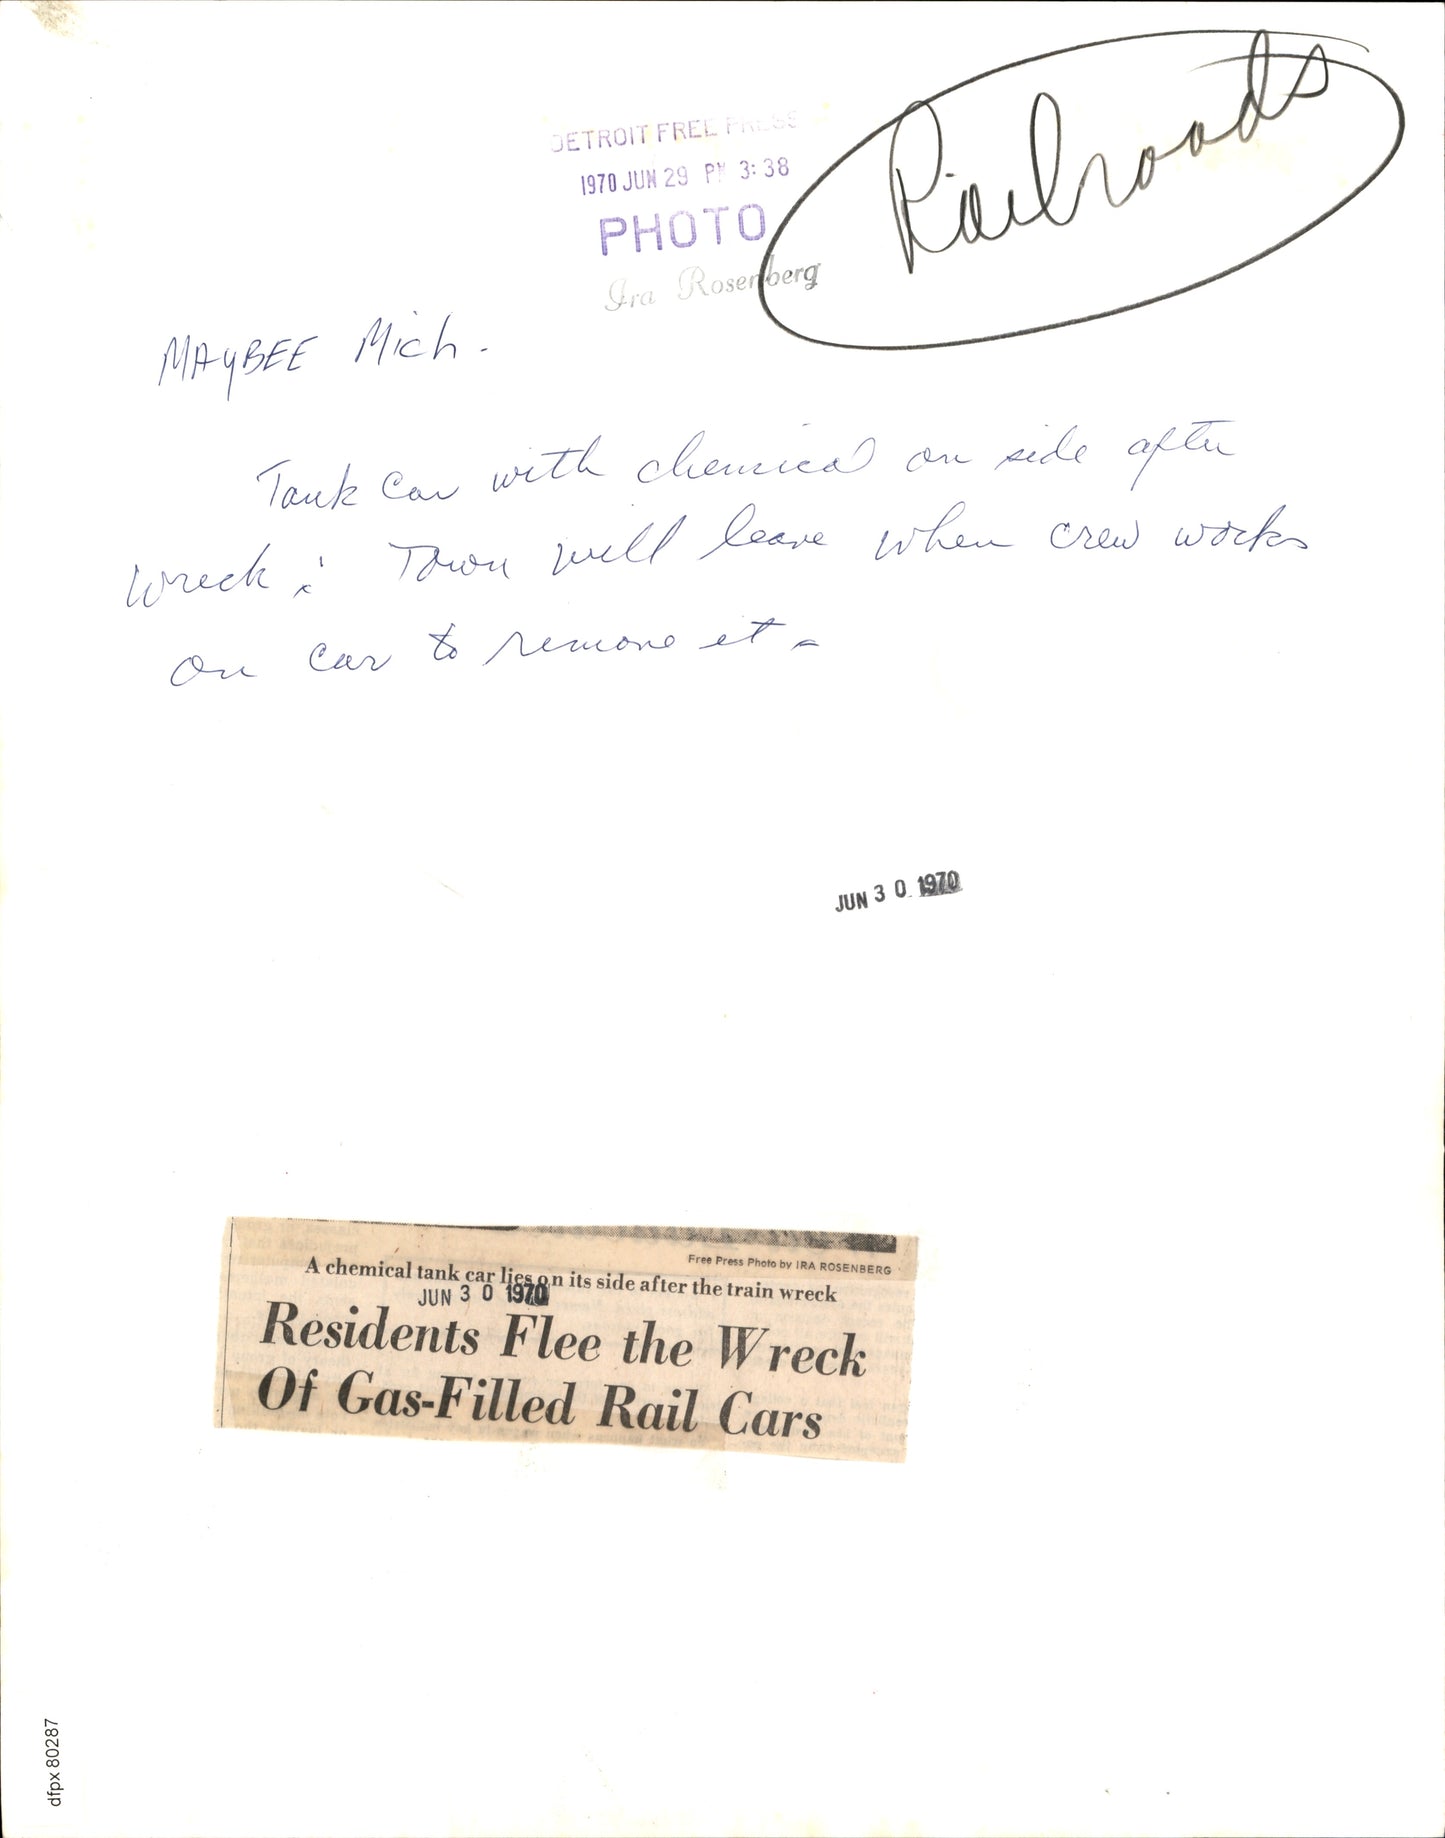 Railroads
DETROIT FREE PRESS
1970 JUN 29 PM 3:38
PHOTO
Ira Rosenberg
MAYBEE Mich.
Tank car with chemical on side after
wreck: Town will leave when crew works
on car to remove it.
JUN 30 1970
Free Press Photo by IRA ROSENBERG
A chemical tank car lies on its side after the train wreck
JUN 30 1970
Residents Flee the Wreck
Of Gas-Filled Rail Cars
dfpx 80287